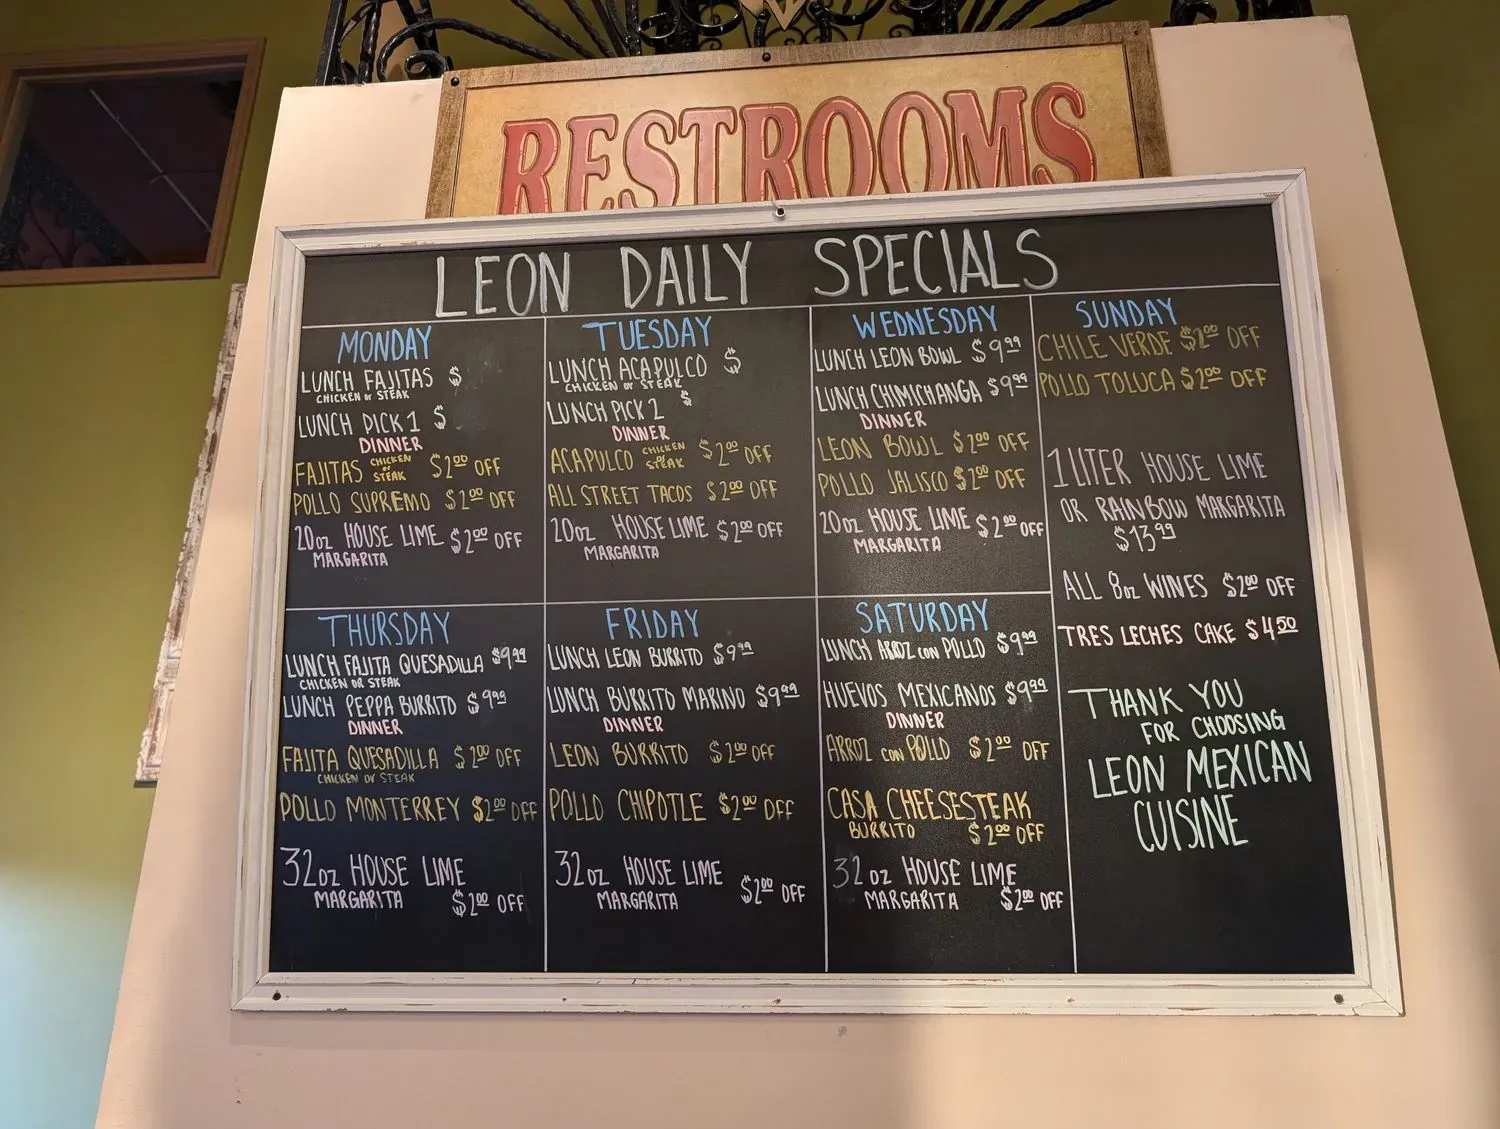 RESTROOMS
LEON DAILY SPECIALS
MONDAY
LUNCH FAJITAS $
CHICKEN or STEAK
LUNCH PICK 1 $
DINNER
FAJITAS CHICKEN or STEAK $2.00 OFF
POLLO SUPREMO $2.00 OFF
20oz HOUSE LIME $2.00 OFF
MARGARITA
TUESDAY
LUNCH ACAPULCO $
CHICKEN or STEAK
LUNCH PICK 2 $
DINNER
ACAPULCO CHICKEN or STEAK $2.00 OFF
ALL STREET TACOS $2.00 OFF
20oz HOUSE LIME $2.00 OFF
MARGARITA
WEDNESDAY
LUNCH LEON BOWL $9.99
LUNCH CHIMICHANGA $9.99
DINNER
LEON BOWL $2.00 OFF
POLLO JALISCO $2.00 OFF
20oz HOUSE LIME $2.00 OFF
MARGARITA
THURSDAY
LUNCH FAJITA QUESADILLA $9.99
CHICKEN OR STEAK
LUNCH PEPPA BURRITO $9.99
DINNER
FAJITA QUESADILLA $2.00 OFF
CHICKEN or STEAK
POLLO MONTERREY $2.00 OFF
32oz HOUSE LIME
MARGARITA $2.00 OFF
FRIDAY
LUNCH LEON BURRITO $9.99
LUNCH BURRITO MARINO $9.99
DINNER
LEON BURRITO $2.00 OFF
POLLO CHIPOTLE $2.00 OFF
32oz HOUSE LIME
MARGARITA $2.00 OFF
SATURDAY
LUNCH ARROZ con POLLO $9.99
HUEVOS MEXICANOS $9.99
DINNER
ARROZ con POLLO $2.00 OFF
CASA CHEESESTEAK
BURRITO $2.00 OFF
32oz HOUSE LIME
MARGARITA $2.00 OFF
SUNDAY
CHILE VERDE $2.00 OFF
POLLO TOLUCA $2.00 OFF
1 LITER HOUSE LIME
OR RAINBOW MARGARITA
$13.99
ALL 8oz WINES $2.00 OFF
TRES LECHES CAKE $4.50
THANK YOU
FOR CHOOSING
LEON MEXICAN
CUISINE